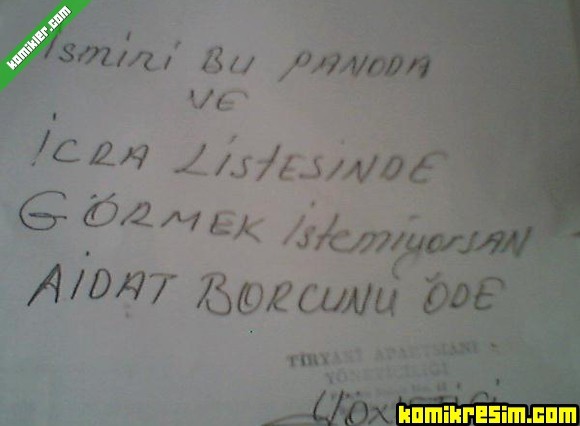 komikler.com
ismini BU PANODA
VE
İCRA LİSTESİNDE
GÖRMEK İstemiyorSAN
AİDAT BORCUNU ÖDE
TİRYAKİ APARTMANI
YÖNETİCİLİĞİ
komikresim.com